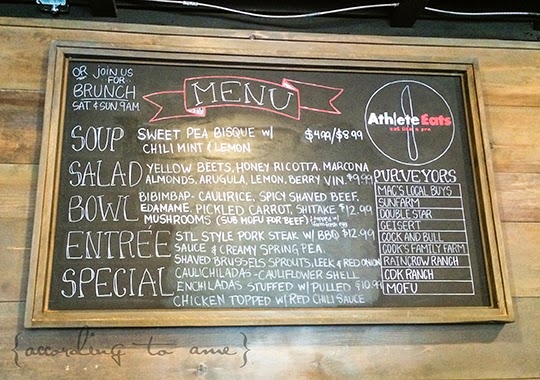 OR JOIN US
FOR
BRUNCH
SAT & SUN 9AM
MENU
SOUP
SWEET PEA BISQUE W/
CHILI MINT & LEMON
$4.99/$8.99
SALAD
YELLOW BEETS, HONEY RICOTTA, MARCONA
ALMONDS, ARUGULA, LEMON, BERRY VIN. $9.99
BOWL
BIBIMBAP- CAULIRICE, SPICY SHAVED BEEF,
EDAMAME, PICKLED CARROT, SHITAKE $12.99
MUSHROOMS (SUB MOFU FOR BEEF)
ENTRÉE
STL STYLE PORK STEAK W/ BBQ $12.99
SAUCE & CREAMY SPRING PEA,
SHAVED BRUSSELS SPROUTS, LEEK & RED ONION
SPECIAL
CAULICHILADAS - CAULIFLOWER SHELL
ENCHILADAS STUFFED W/ PULLED $10.99
CHICKEN TOPPED W/ RED CHILI SAUCE
Athlete Eats
eat like a pro
PURVEYORS
MAC'S LOCAL BUYS
SUNFARM
DOUBLE STAR
GEISERT
COCK AND BULL
COOK'S FAMILY FARM
RAINCROW RANCH
CDK RANCH
MOFU
{according to ame}